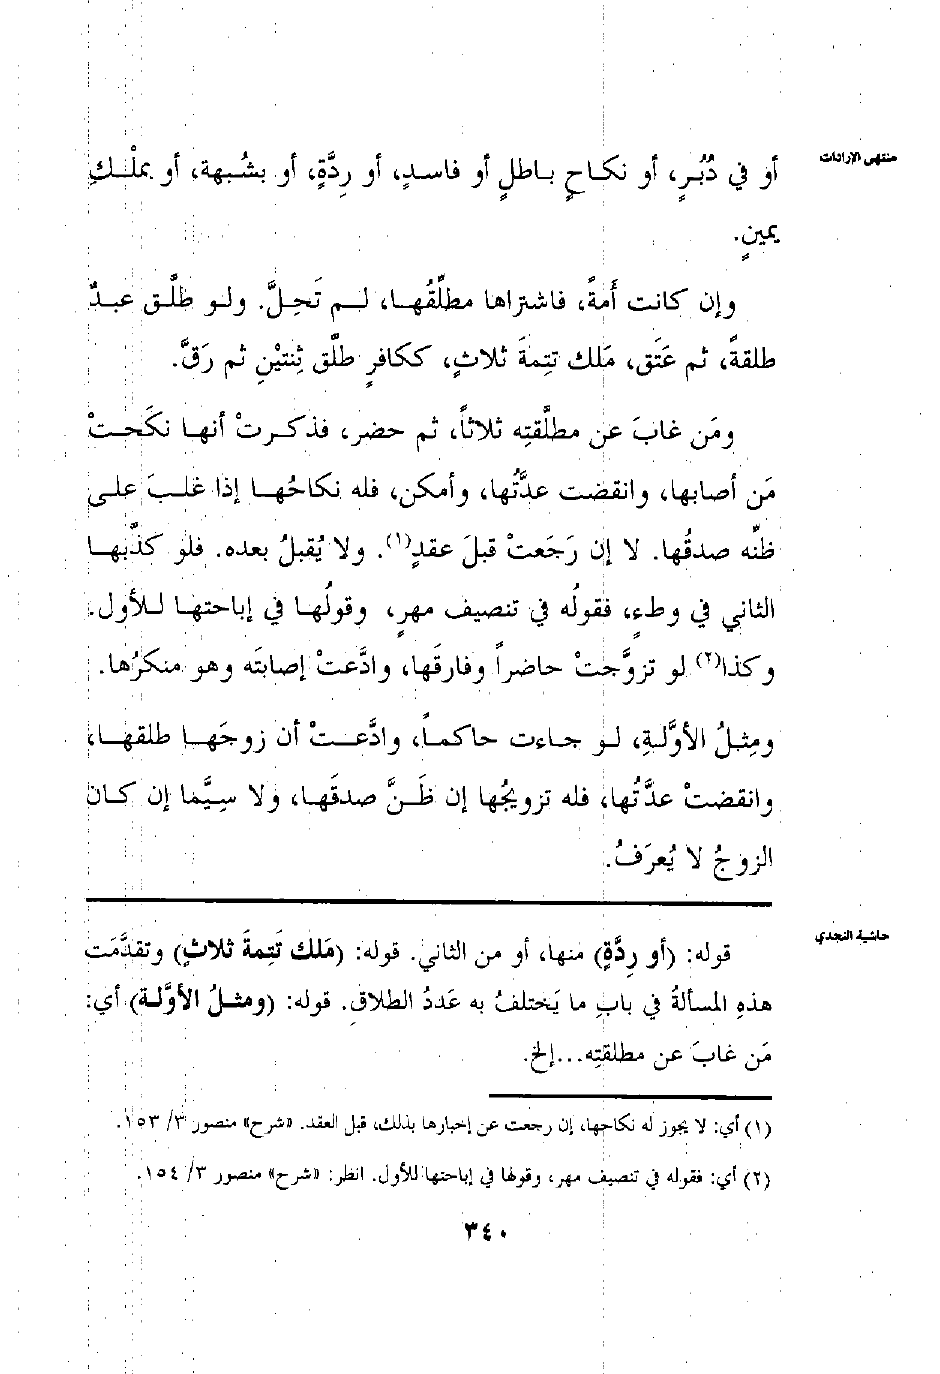 منتهى الإرادات
أو في دُبُرٍ، أو نكـاحٍ بـاطلٍ أو فاسـدٍ، أو رِدَّةٍ، أو بشُبهة، أو بملْـكِ
يمينٍ.
وإن كانت أَمةً، فاشتراها مطلِّقُهـا، لـم تَحِلَّ. ولـو طلَّـق عبـدٌ
طلقةً، ثم عَتَق، مَلك تتِمةَ ثلاثٍ، ككافرٍ طلَّق ثِنتيْنِ ثم رَقَّ.
ومَن غابَ عن مطلَّقتِه ثلاثاً، ثم حضر، فذكـرتْ أنهـا نكَحـتْ
مَن أصابها، وانقضت عدَّتُها، وأمكن، فله نكاحُهـا إذا غلـبَ علـى
ظنِّه صدقُها. لا إن رَجَعتْ قبلَ عقدٍ(١). ولا يُقبلُ بعده. فلو كذَّبهـا
الثاني في وطءٍ، فقولُه في تنصيف مهرٍ، وقولُهـا في إباحتهـا لـلأول.
وكذا(٢) لو تزوَّجتْ حاضراً وفارقَها، وادَّعتْ إصابتَه وهو منكرُها.
ومِثلُ الأوَّلةِ، لـو جـاءت حاكمـاً، وادَّعـتْ أن زوجَهـا طلقهـا،
وانقضتْ عدَّتُها، فله تزويجُها إن ظَـنَّ صدقَهـا، ولا سيَّما إن كـان
الزوجُ لا يُعرَفُ.
حاشية النجدي
قوله: (أو رِدَّةٍ) منها، أو من الثاني. قوله: (مَلك تَتِمةَ ثلاثٍ) وتقدَّمت
هذهِ المسألةُ في بابِ ما يَختلفُ به عَددُ الطلاقِ. قوله: (ومثلُ الأوَّلة) أي:
مَن غابَ عن مطلقتِه...إلخ.
(١) أي: لا يجوز له نكاحها، إن رجعت عن إخبارها بذلك، قبل العقد. «شرح» منصور ٣/ ١٥٣.
(٢) أي: فقوله في تنصيف مهر، وقولها في إباحتها للأول. انظر: «شرح» منصور ٣/ ١٥٤.
٣٤٠